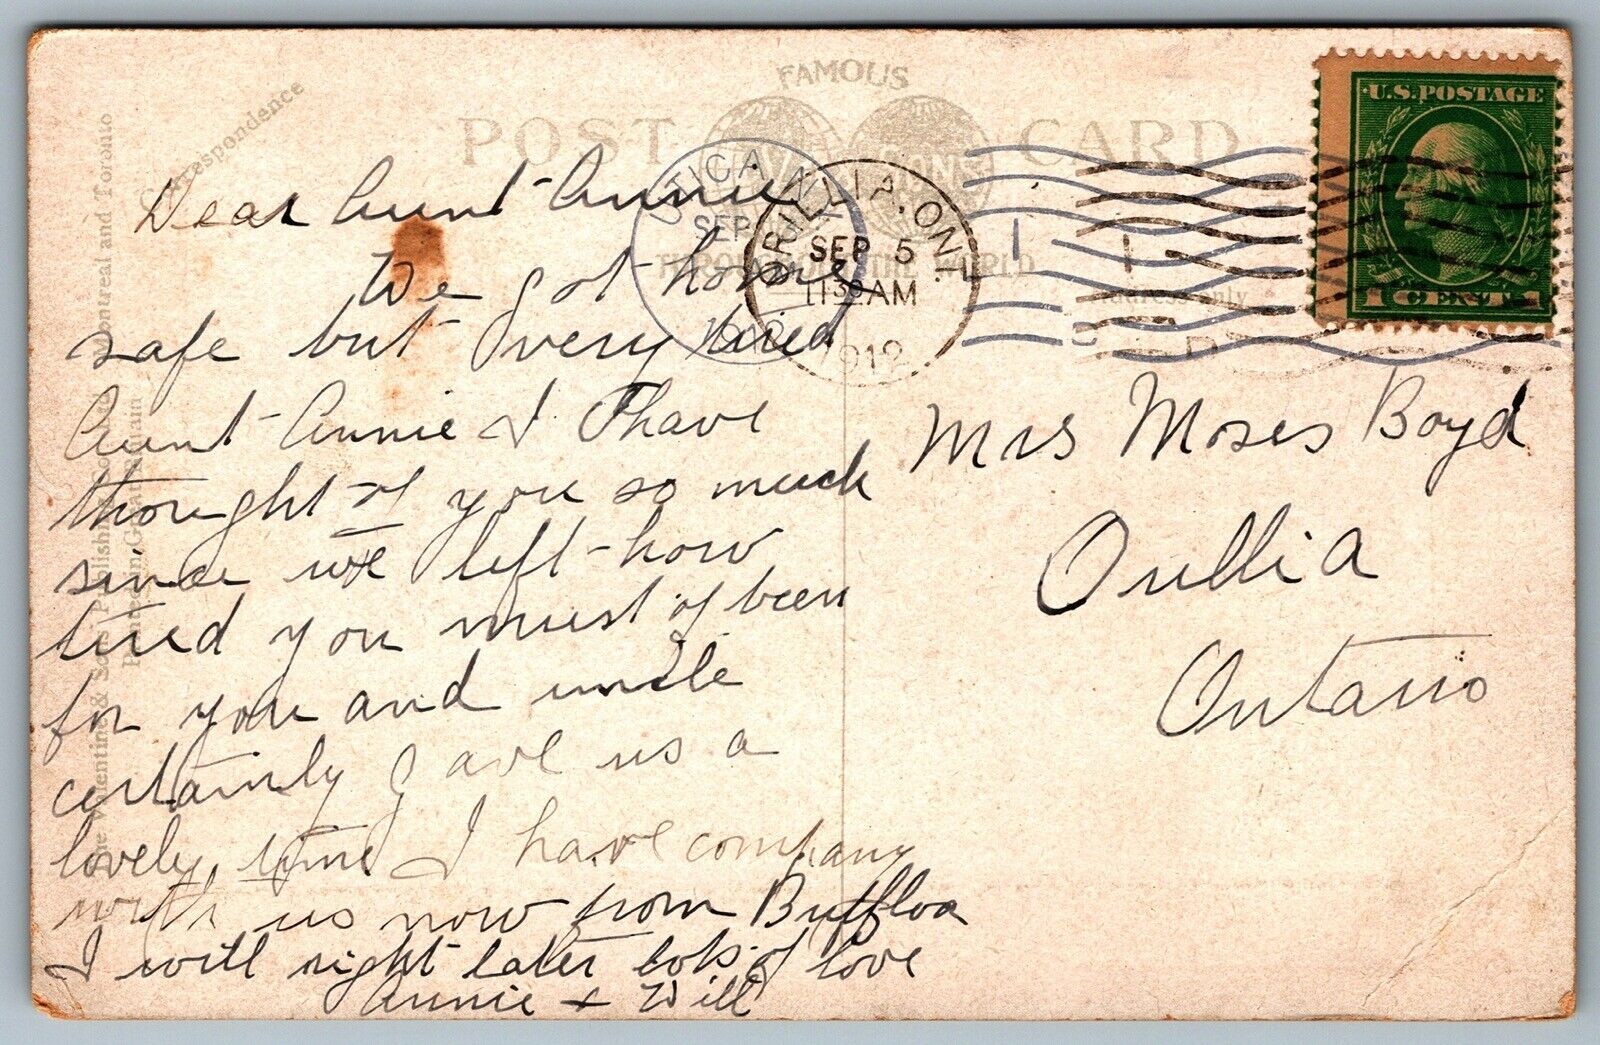 FAMOUS
POST CARD
THROUGHOUT THE WORLD
Correspondence
Address only
U.S. POSTAGE
1 CENT 1
UTICA N.Y.
SEP
1912
ORILLIA, ONT.
SEP 5
11 30 AM
1912
The Valentine & Sons Publishing Co. Ltd., Montreal and Toronto
Printed in Great Britain
Dear Aunt Annie
We got home
safe but very tired
Aunt Annie I have
thought of you so much
since we left how
tired you must of been
for you and uncle
certainly gave us a
lovely time I have company
with us now from Buffloa
I will right later lots of love
Annie + Will
Mrs Moses Boyd
Orillia
Ontario